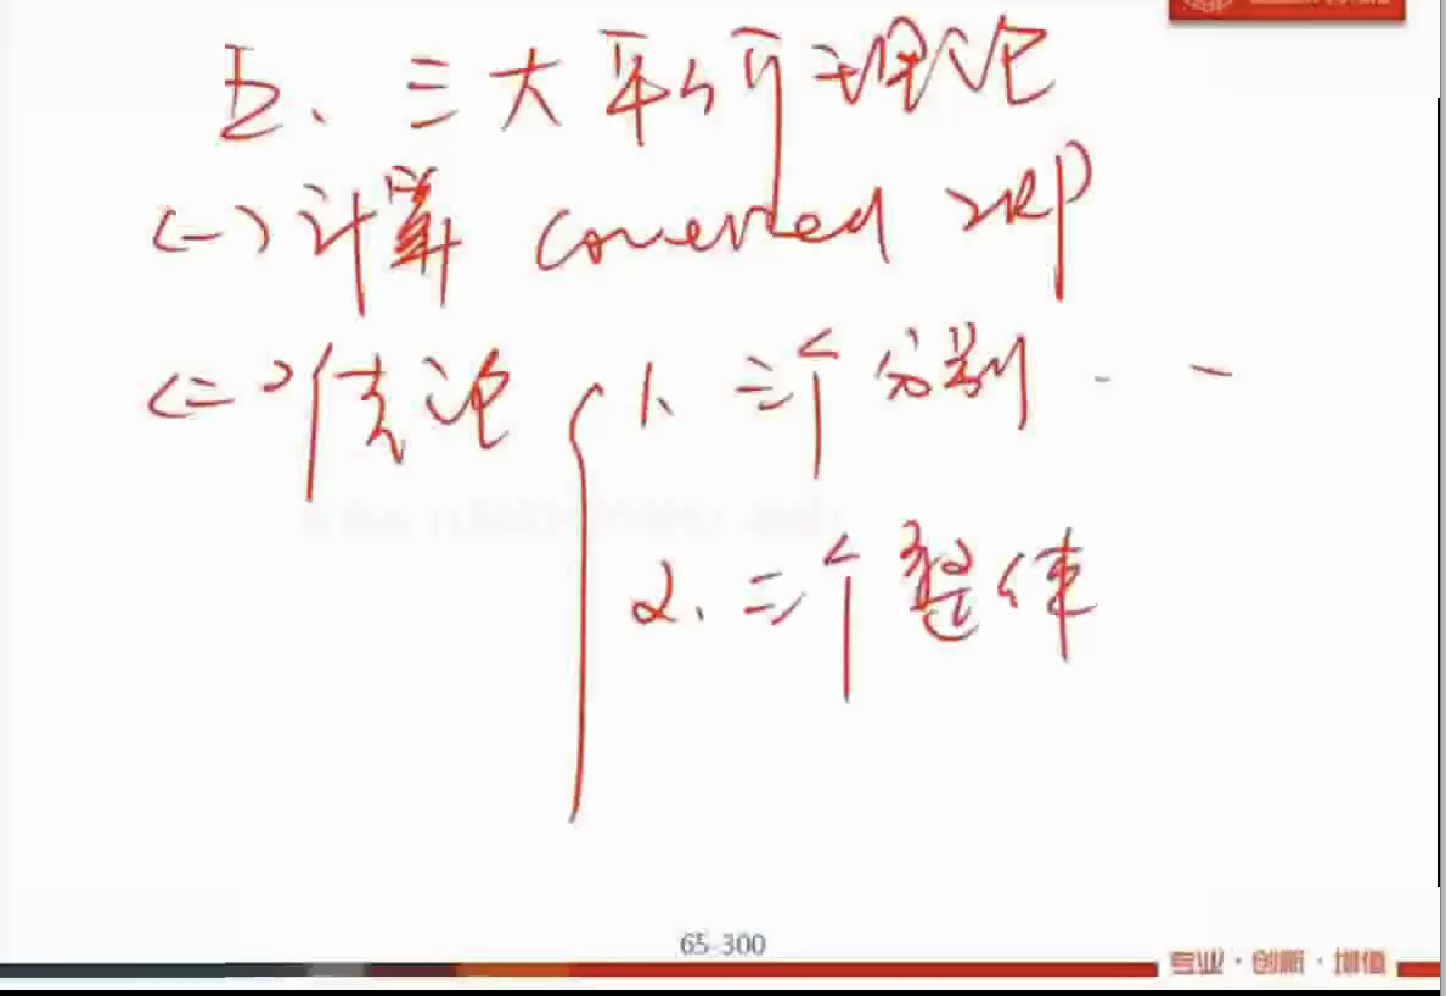 五、三大平价理论
(一)计算 covered IRP
(二)结论 1、三个分别 . -
2、三个整体
65-300
专业·创新·增值